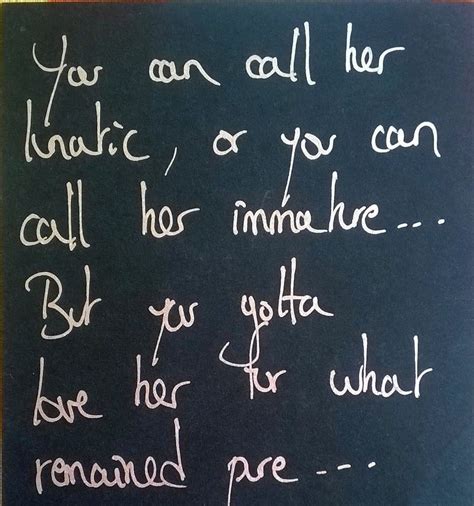 You can call her
lunatic, or you can
call her immature...
But you gotta
love her for what
remained pure...